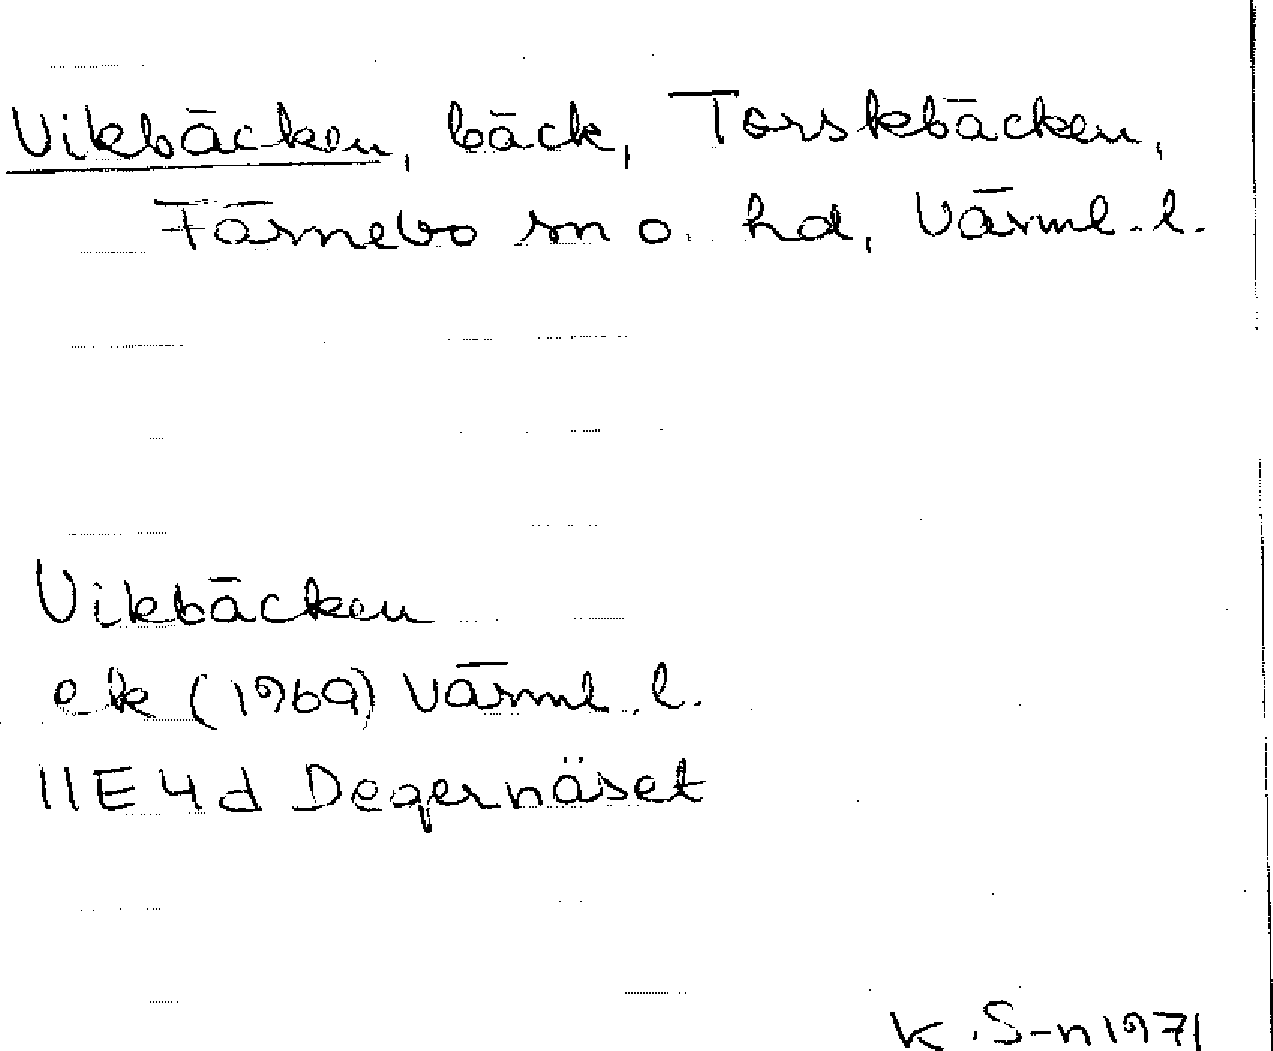 Vikbäcken, bäck, Torskbäcken,
Färnebo sn o. hd, Värml. l.
Vikbäcken
ek (1969) Värml. l.
11E4d Degernäset
K. S-n 1971